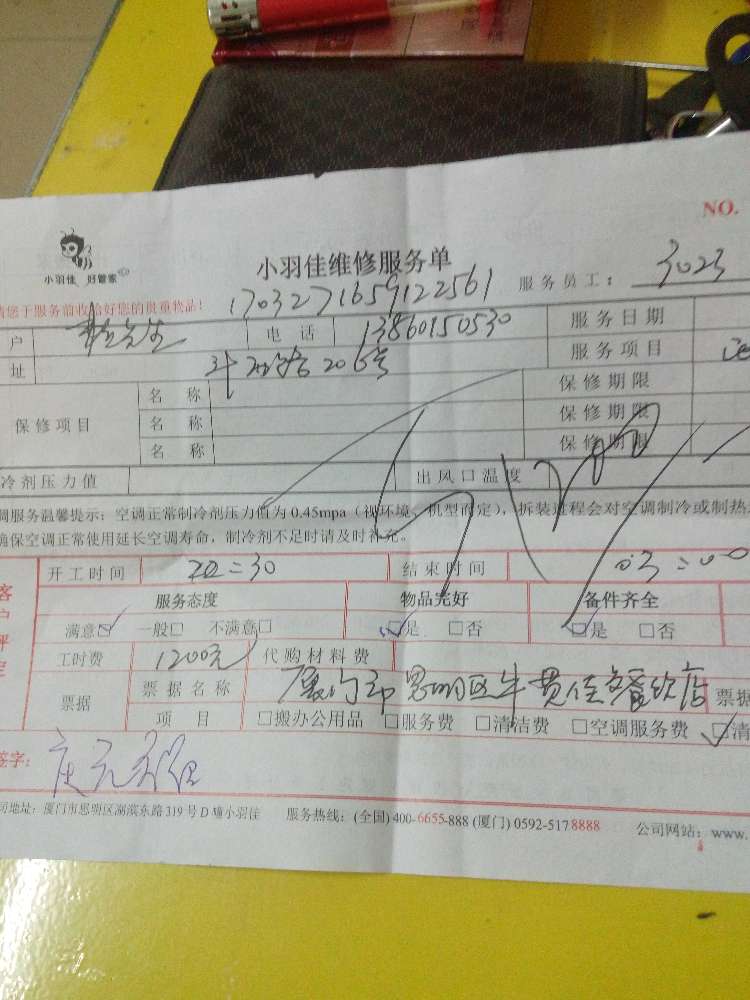 NO.
小羽佳 好管家
小羽佳维修服务单
服务员工: 3023
请您于服务前收给好您的贵重物品! 1703271659122561
户 先生 电话 13860150530 服务日期
址 206号 服务项目
保修项目 名称 保修期限
名称 保修期限
名称 保修期限
冷剂压力值 出风口温度
调服务温馨提示: 空调正常制冷剂压力值为 0.45mpa (视环境、机型而定), 拆装过程会对空调制冷或制热
确保空调正常使用延长空调寿命, 制冷剂不足时请及时补充。
客户评定
开工时间 结束时间
服务态度 物品完好 备件齐全
满意☑ 一般□ 不满意□ ☑是 □否 ☑是 □否
工时费 1200元 代购材料费
票据 票据名称 厦门市思明区牛贯佳餐饮店 票据
项目 □搬办公用品 □服务费 □清洁费 □空调服务费 ☑清
签字:
司地址: 厦门市思明区湖滨东路 319 号 D 幢小羽佳 服务热线: (全国) 400-6655-888 (厦门) 0592-5178888 公司网站: www.